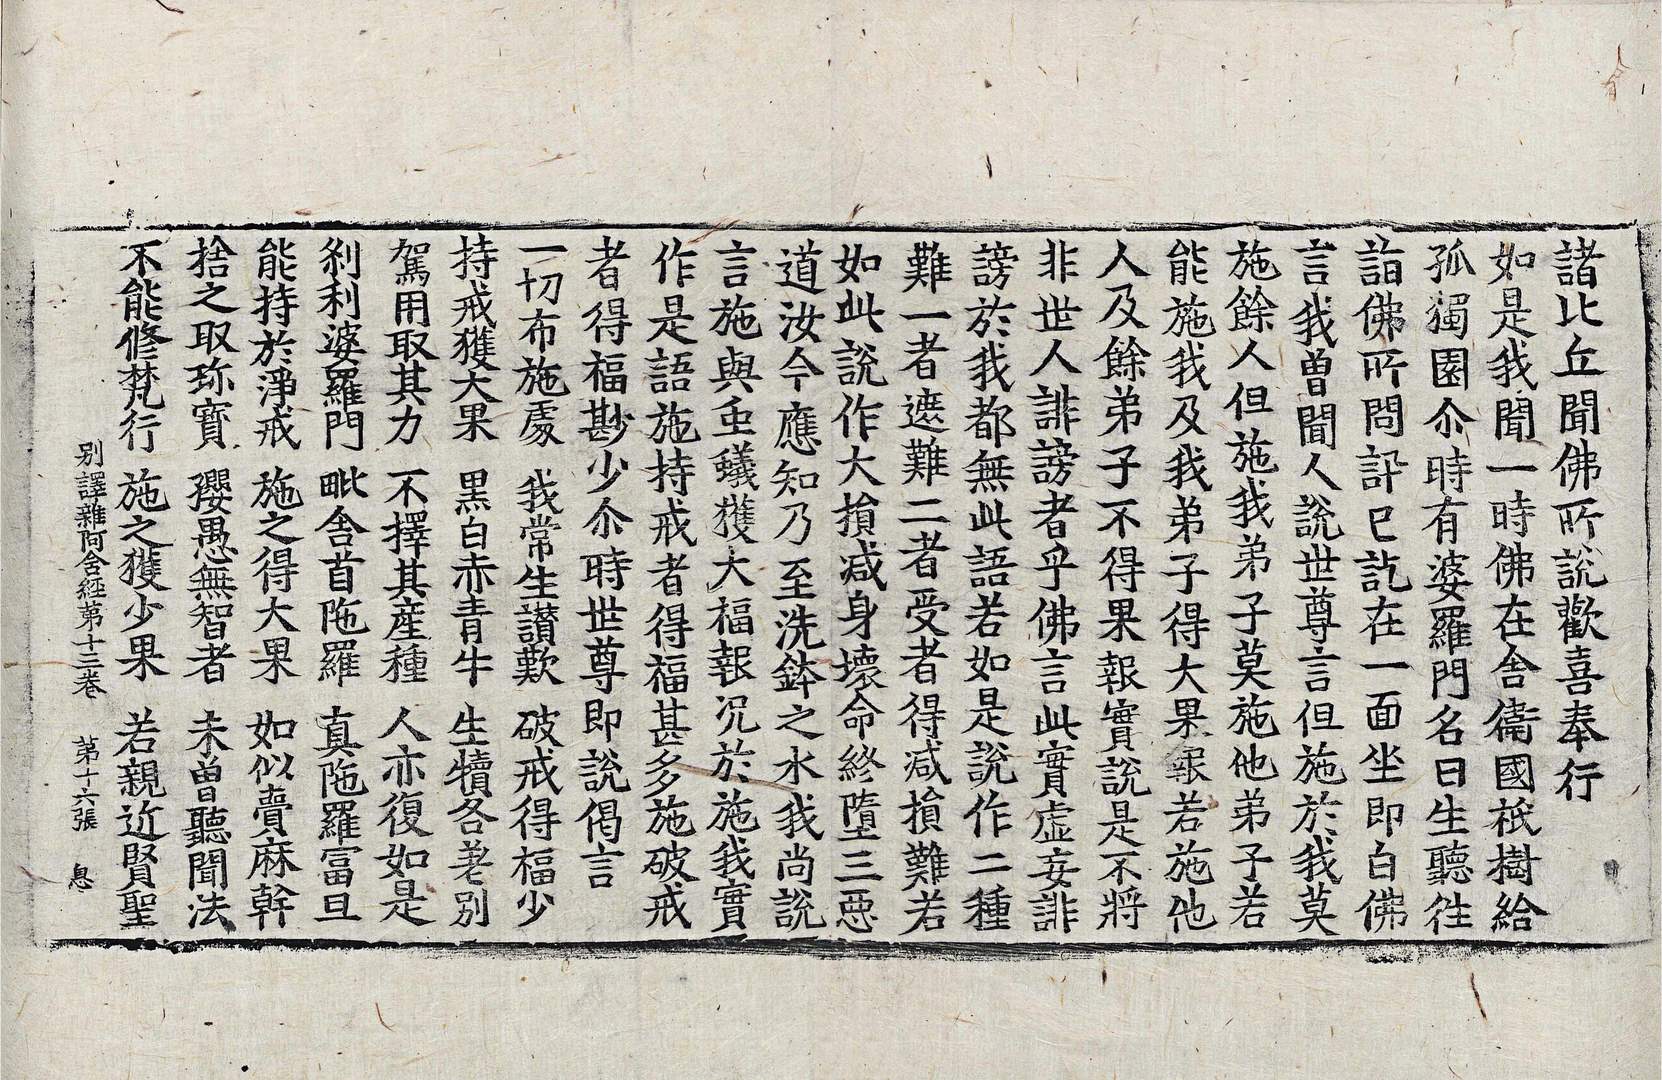 諸比丘聞佛所說歡喜奉行
如是我聞一時佛在舍衛國祇樹給
孤獨園尒時有婆羅門名曰生聽徃
詣佛所問訊已訖在一面坐即白佛
言我曽聞人說世尊言但施於我莫
施餘人但施我弟子莫施他弟子若
能施我及我弟子得大果報若施他
人及餘弟子不得果報實說是不將
非世人誹謗者乎佛言此實虛妄誹
謗於我都無此語若如是說作二種
難一者遮難二者受者得减損難若
如此說作大損减身壞命終墮三惡
道汝今應知乃至洗鉢之水我尚說
言施與虫蟻獲大福報况於施我實
作是語施持戒者得福甚多施破戒
者得福尠少尒時世尊即說偈言
一切布施處 我常生讃歎 破戒得福少
持戒獲大果 黒白赤青牛 生犢各差別
駕用取其力 不擇其產種 人亦復如是
刹利婆羅門 毗舍首陁羅 真陁羅冨旦
能持於淨戒 施之得大果 如似賣麻幹
捨之取珎寶 孾愚無智者 未曽聽聞法
不能修梵行 施之獲少果 若親近賢聖
別譯雜阿含經第十三卷 第十六張 息